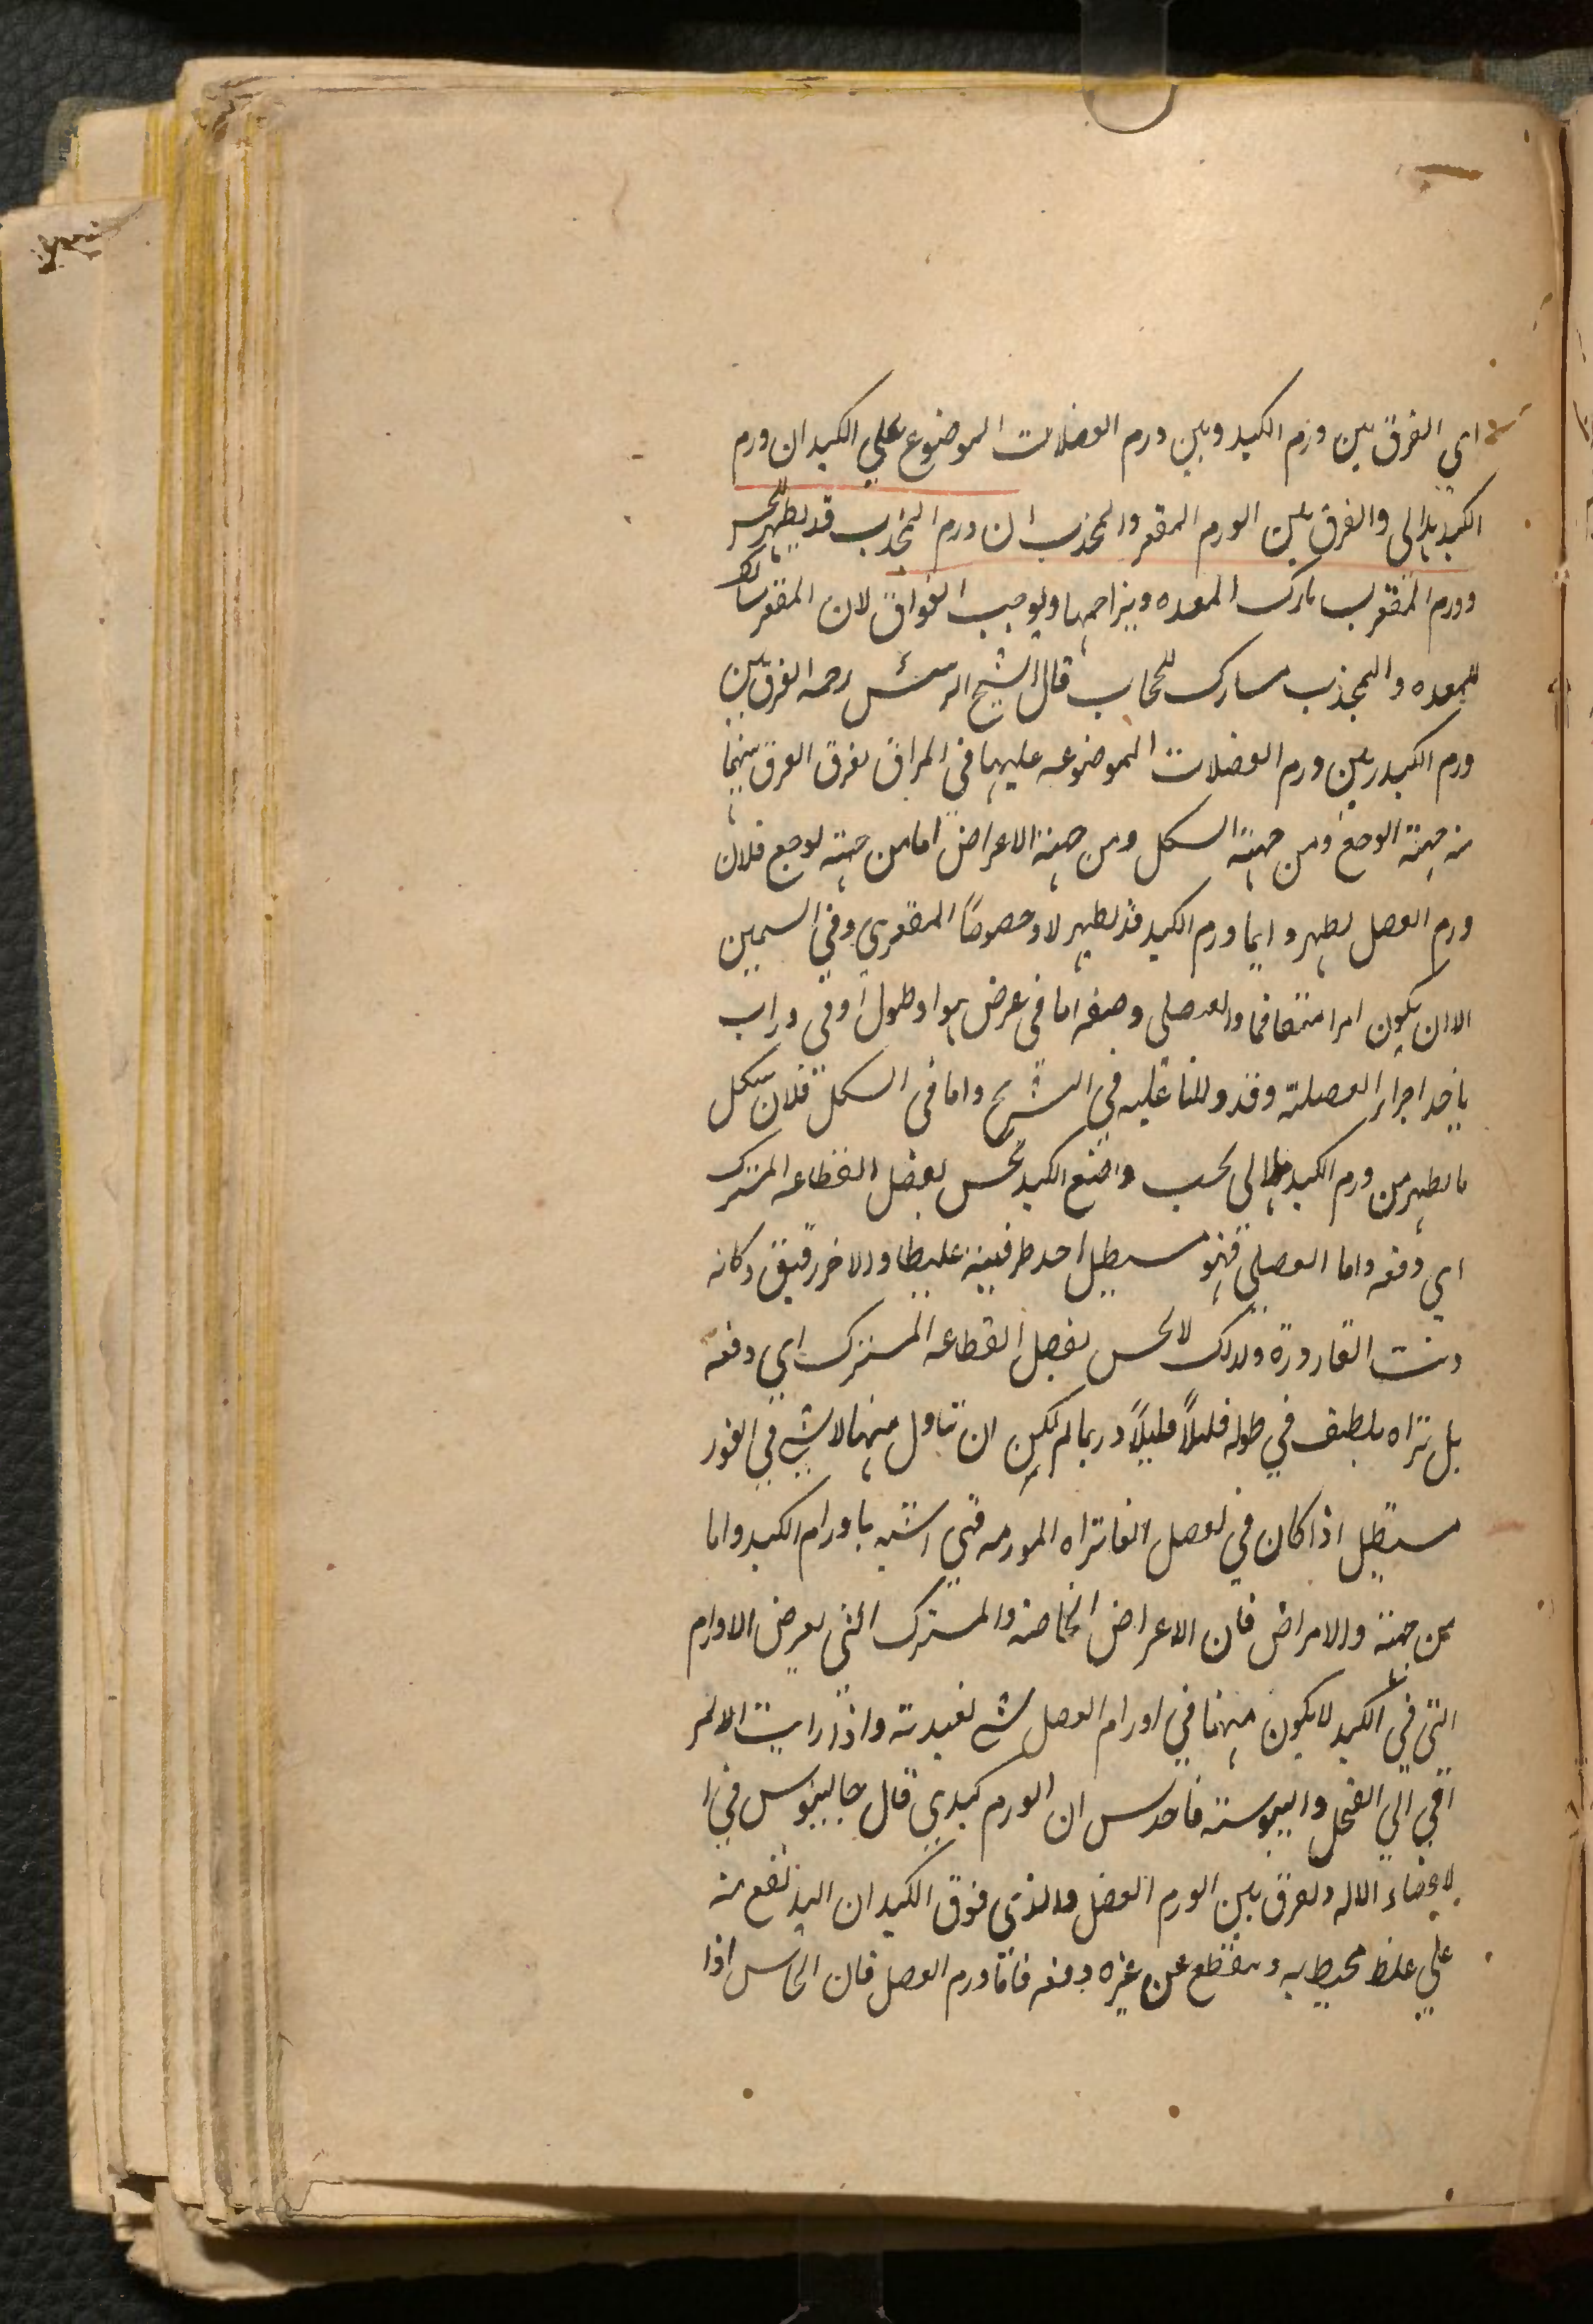 اي الفرق بين ورم الكبد وبين ورم العضلات الموضوع علي الكبد ان ورم
الكبد هلالى والفرق بين الورم المقعر والمحذب ان ورم المحذب قد يظهر للحس
وورم المقعر يشارك المعده ويزاحمها ويوجب الفواق لان المقعر مشارك
للمعده والمحذب مشارك للحجاب قال الشيخ الرئيس رحمه الفرق بين
ورم الكبد وبين ورم العضلات الموضوعه عليها في المراق يفرق الفرق بينهما
من جهة الوضع ومن جهة الشكل ومن جهة الاعراض اما من جهة لوضع فلان
ورم العضل يظهر دايما ورم الكبد قد يظهر لا وخصوصًا المقعري وفي السمين
الا ان يكون امرا متفاقما والعضلى وضعه اما في عرض او طول او في وراب
ياخذ اجزاء العضلة وقد دللنا عليه في التشريح واما في الشكل فلان شكل
ما يظهر من ورم الكبد هلالى بحسب واضع الكبد يحس بفضل القطاعه المشترك
اي دفعه واما العضلي فهو مستطيل احد طرفيه غليظا والاخر رقيق وكانه
ذنب القارورة ولذلك لا يحس بفصل القطاعه المشترك اي دفعه
بل تراه يلطف في طوله قليلاً قليلاً وربما لم يكن ان تناول منها لا شي في الغور
مستطيل اذا كان في لعضل الغا تراه المورمه فهي اشبه باورام الكبد واما
من جهة والامراض فان الاعراض الخاصة والمشترك التي يعرض الاورام
التي في الكبد لا يكون منها في اورام العضل شي يعتد به واذا رايت الامر
اقي الي القحل واليبوسة فاحدس ان الورم كبدي قال جالينوس في ا
لاعضاء الاله ويفرق بين الورم العضل والذي فوق الكبد ان اليد تقع منه
علي غلظ محيط به وينقطع عن غيره دفعه فاما ورم العضل فان الحاس اذا